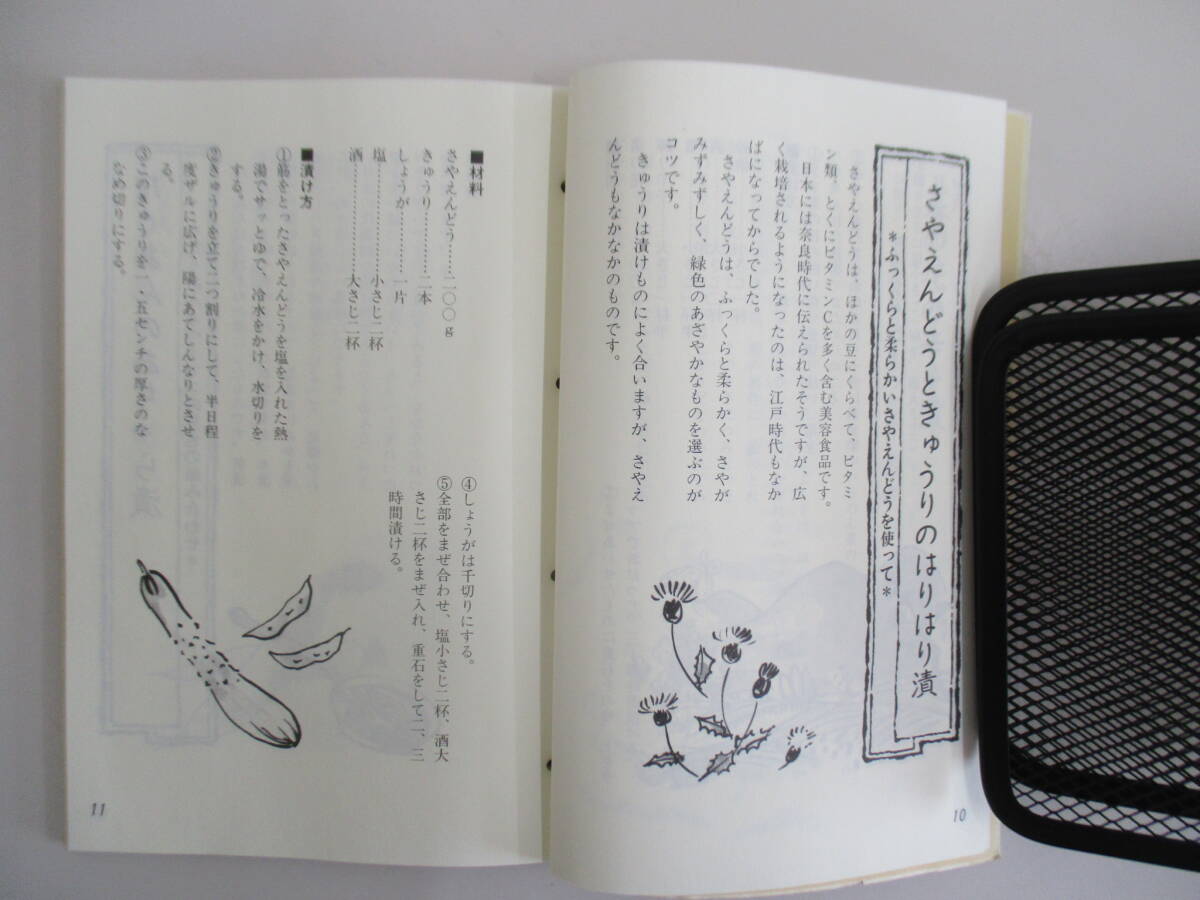 さやえんどうときゅうりのはりはり漬
＊ふっくらと柔らかいさやえんどうを使って＊
さやえんどうは、ほかの豆にくらべて、ビタミ
ン類、とくにビタミンCを多く含む美容食品です。
日本には奈良時代に伝えられたそうですが、広
く栽培されるようになったのは、江戸時代もなか
ばになってからでした。
さやえんどうは、ふっくらと柔らかく、さやが
みずみずしく、緑色のあざやかなものを選ぶのが
コツです。
きゅうりは漬けものによく合いますが、さやえ
んどうもなかなかのものです。
10
■材料
さやえんどう……二〇〇g
きゅうり…………二本
しょうが…………一片
塩…………………小さじ二杯
酒…………………大さじ二杯
■漬け方
①筋をとったさやえんどうを塩を入れた熱
湯でサッとゆで、冷水をかけ、水切りを
する。
②きゅうりを立て二つ割りにして、半日程
度ザルに広げ、陽にあてしんなりとさせ
る。
③このきゅうりを一・五センチの厚さのな
なめ切りにする。
④しょうがは千切りにする。
⑤全部をまぜ合わせ、塩小さじ二杯、酒大
さじ二杯をまぜ入れ、重石をして二、三
時間漬ける。
11